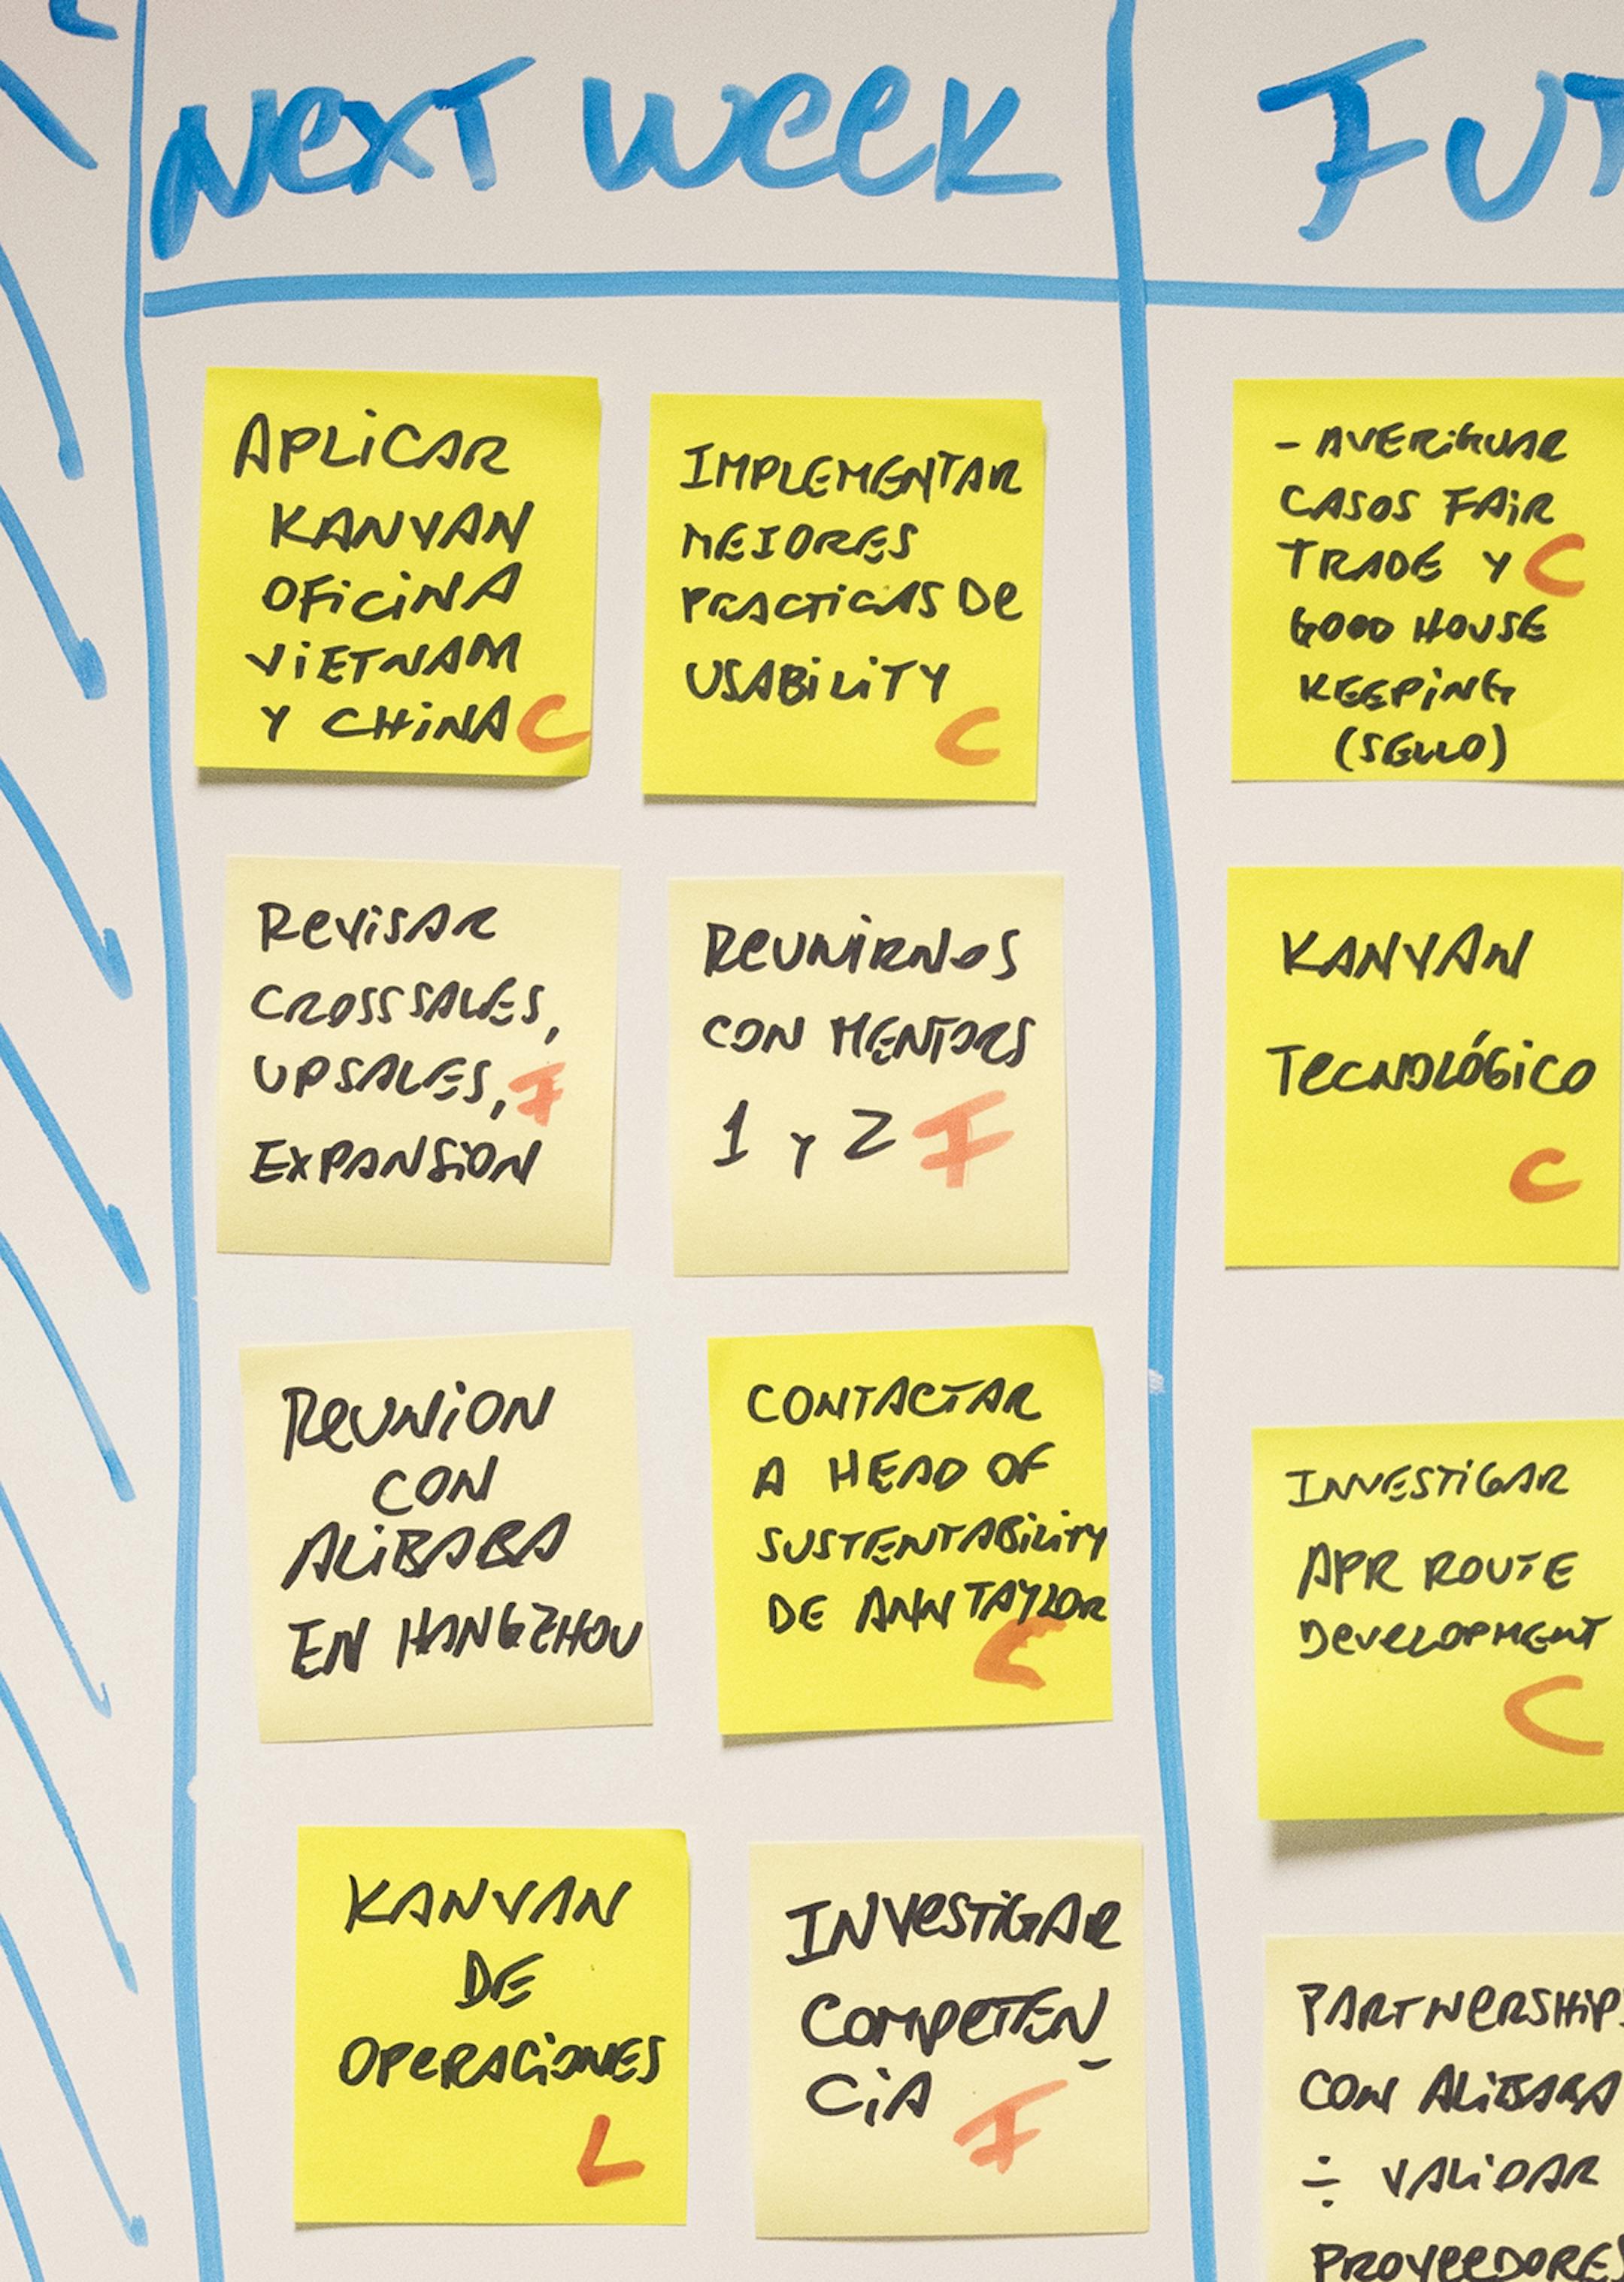 NEXT WEEK
APLICAR
KANVAN
OFICINA
VIETNAM
Y CHINA C
IMPLEMENTAR
MEJORES
PRACTICAS DE
USABILITY
C
REVISAR
CROSSSALES,
UPSALES, F
EXPANSION
REUNIRNOS
CON MENTORS
1 y 2 F
REUNION
CON
ALIBABA
EN HANGZHOU
CONTACTAR
A HEAD OF
SUSTENTABILITY
DE ANN TAYLOR
C
KANVAN
DE
OPERACIONES
L
INVESTIGAR
COMPETEN
CIA F
FUT
- AVERIGUAR
CASOS FAIR
TRADE Y C
GOOD HOUSE
KEEPING
(SELLO)
KANVAN
TECNOLÓGICO
C
INVESTIGAR
APR ROUTE
DEVELOPMENT
C
PARTNERSHIP
CON ALIBABA
÷ VALIDAR
PROVEEDORES